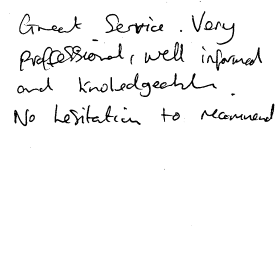 Great Service. Very
proffessional, well informed
and knoledgeable.
No hesitation to recommend